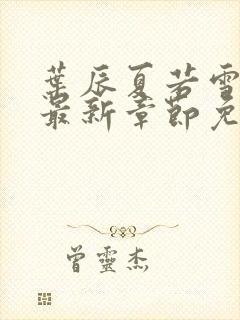 葉辰夏若雪
最新章節免
曾靈杰